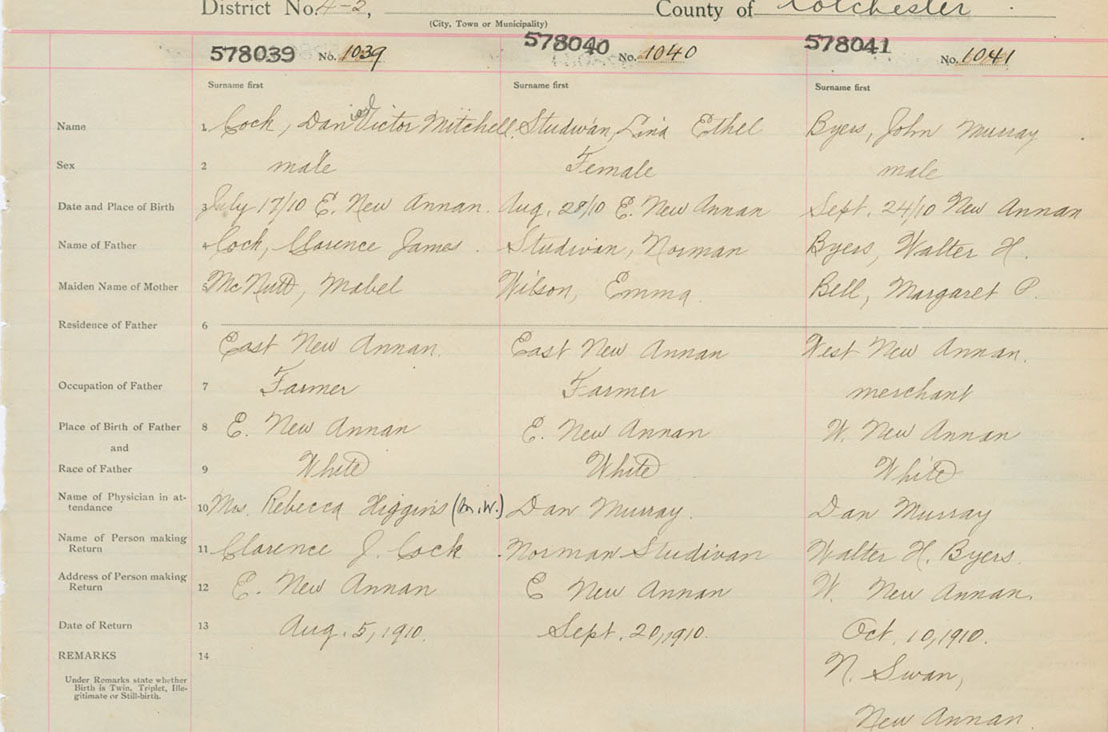 District No. 4-2, County of Colchester
(City, Town or Municipality)
578039 No. 1039 578040 No. 1040 578041 No. 1041
Surname first Surname first Surname first
Name 1 Cock, Daniel Victor Mitchell Studivan, Lina Ethel Byers, John Murray
Sex 2 male Female male
Date and Place of Birth 3 July 17/10 E. New Annan. Aug. 28/10 E. New Annan Sept. 24/10 New Annan
Name of Father 4 Cock, Clarence James. Studivan, Norman Byers, Walter H.
Maiden Name of Mother 5 McNutt, Mabel Wilson, Emma Bell, Margaret P.
Residence of Father 6
East New Annan. East New Annan West New Annan.
Occupation of Father 7 Farmer Farmer merchant
Place of Birth of Father 8 E. New Annan E. New Annan W. New Annan
and
Race of Father 9 White White White
Name of Physician in at-
tendance 10 Mrs. Rebecca Higgins (m.w.) Dan Murray. Dan Murray
Name of Person making
Return 11 Clarence J. Cock Norman Studivan Walter H. Byers.
Address of Person making
Return 12 E. New Annan E New Annan W. New Annan.
Date of Return 13 Aug. 5, 1910. Sept. 20, 1910. Oct. 10, 1910.
REMARKS 14 N. Swan,
Under Remarks state whether
Birth is Twin, Triplet, Ille-
gitimate or Still-birth.
New Annan.